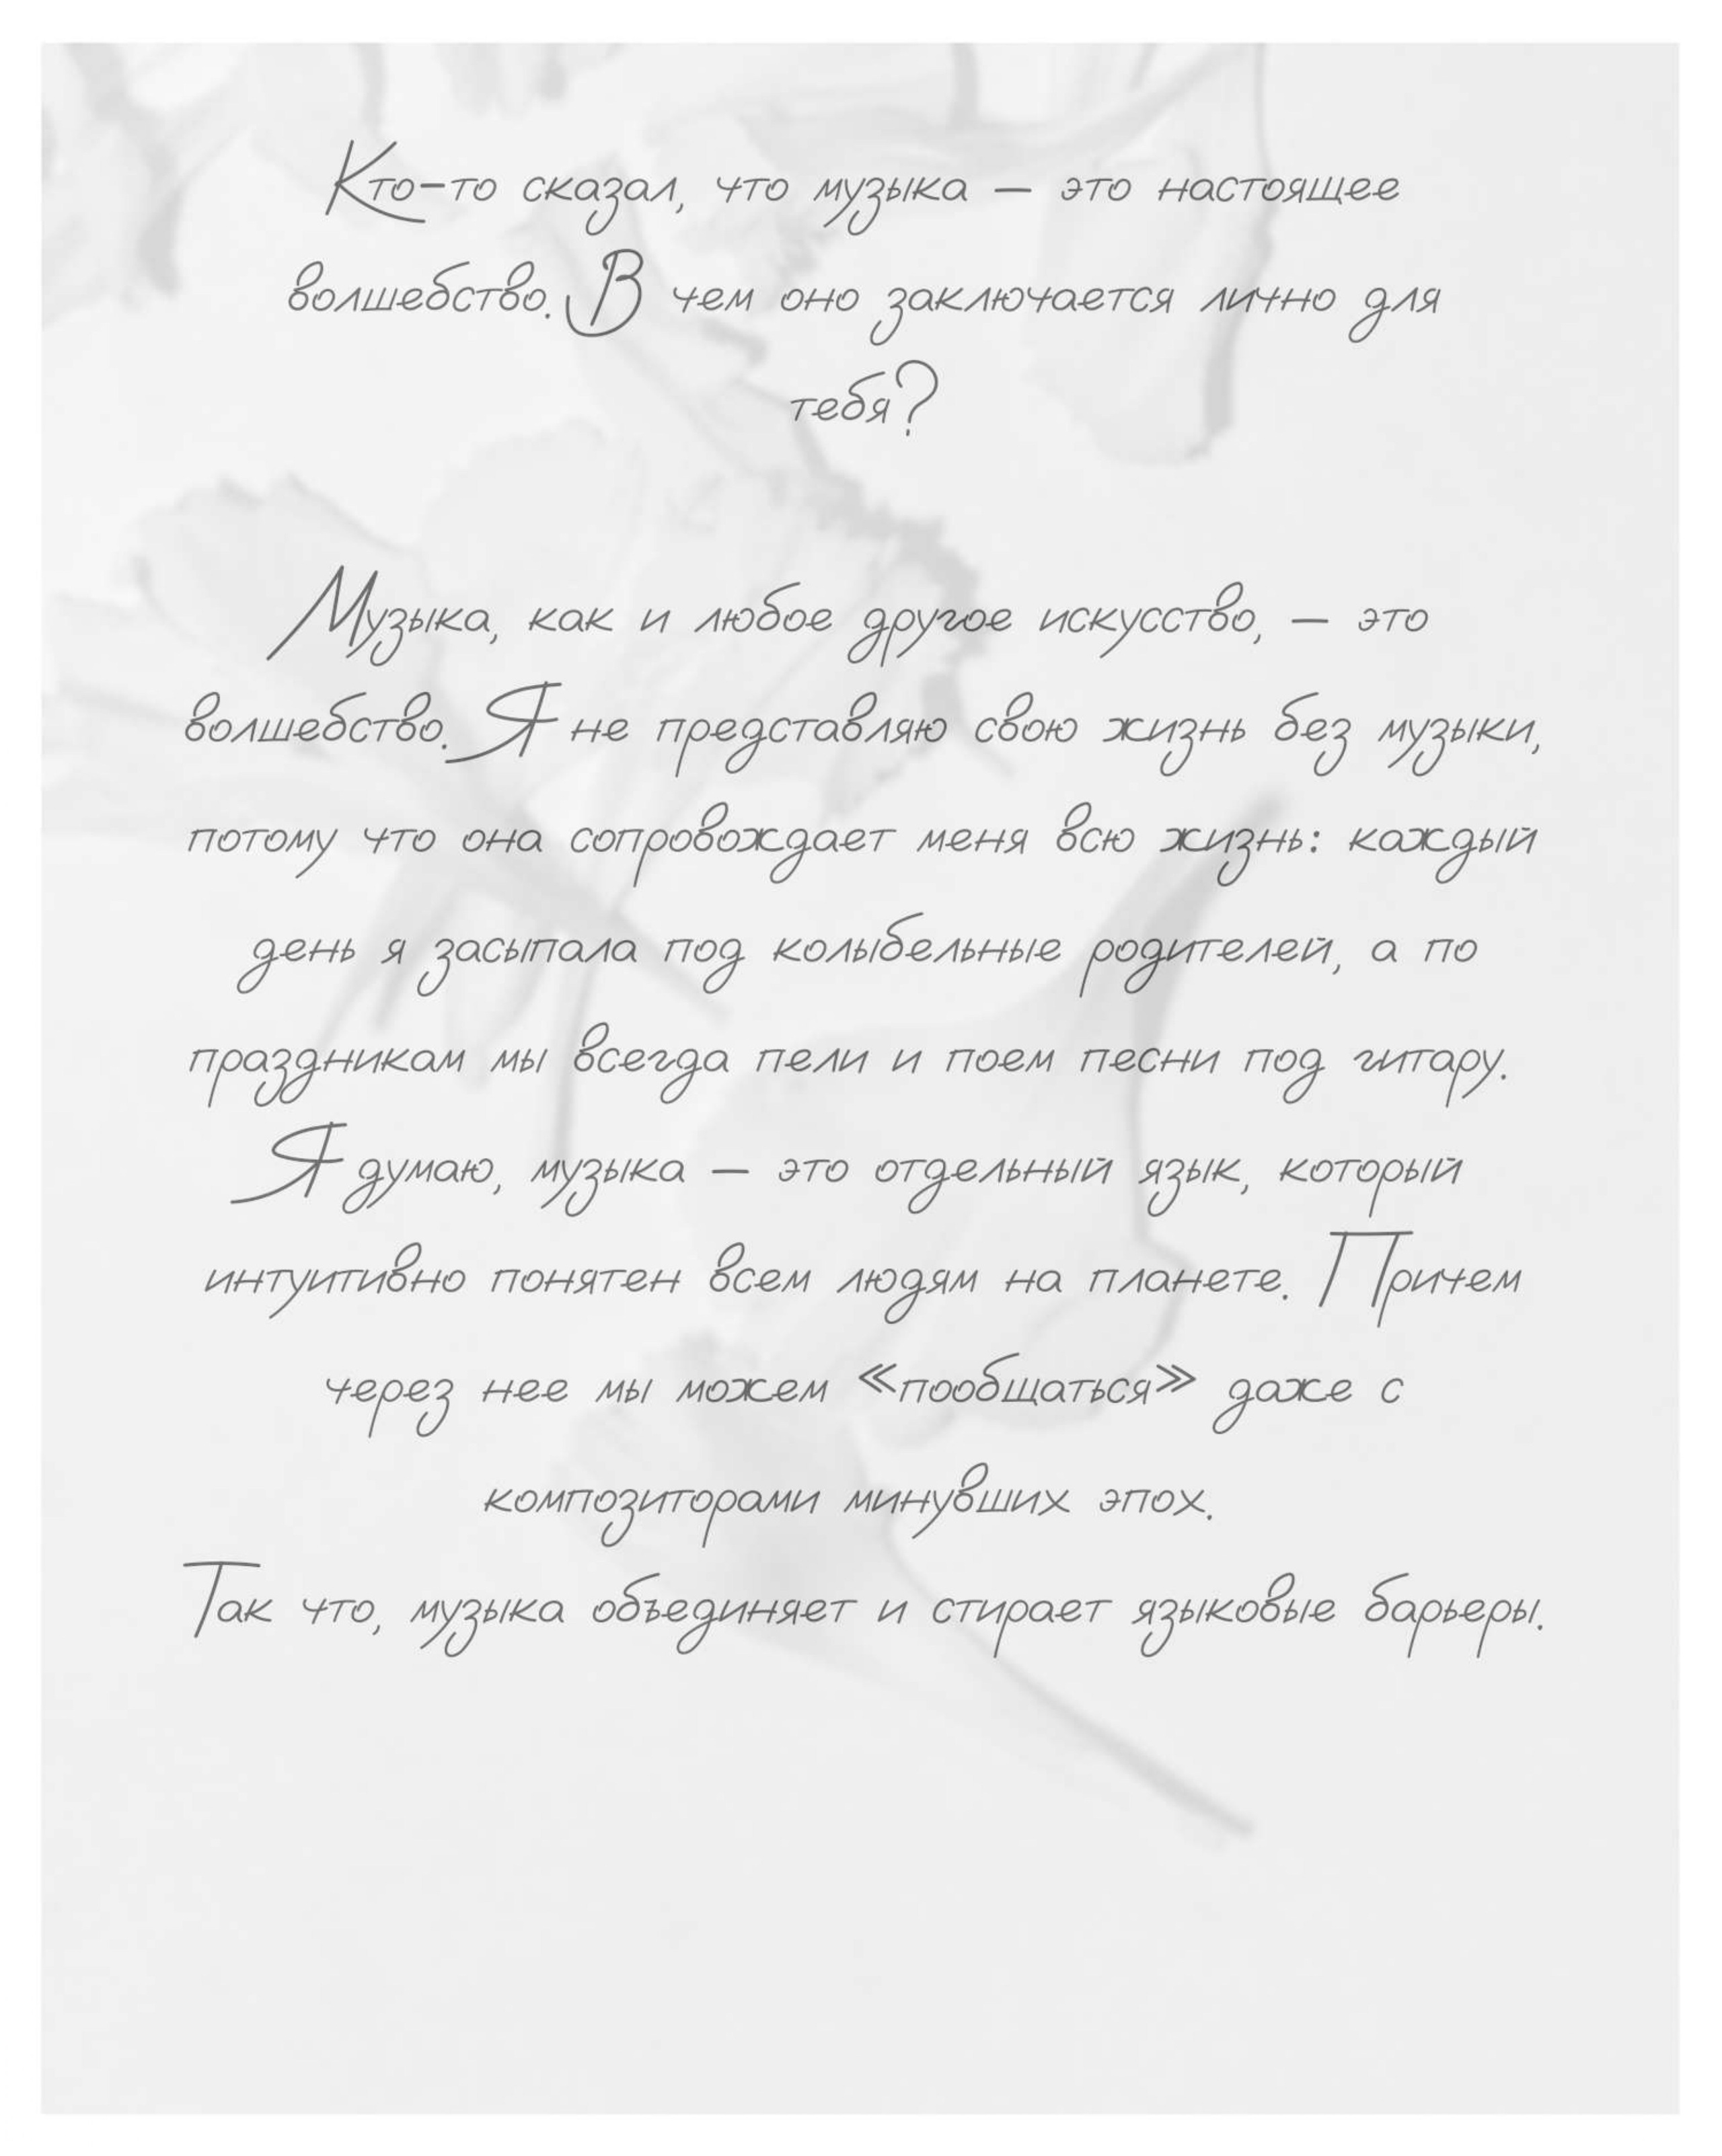 Кто-то сказал, что музыка — это настоящее
волшебство. В чем оно заключается лично для
тебя?
Музыка, как и любое другое искусство, — это
волшебство. Я не представляю свою жизнь без музыки,
потому что она сопровождает меня всю жизнь: каждый
день я засыпала под колыбельные родителей, а по
праздникам мы всегда пели и поем песни под гитару.
Я думаю, музыка — это отдельный язык, который
интуитивно понятен всем людям на планете. Причем
через нее мы можем «пообщаться» даже с
композиторами минувших эпох.
Так что, музыка объединяет и стирает языковые барьеры.